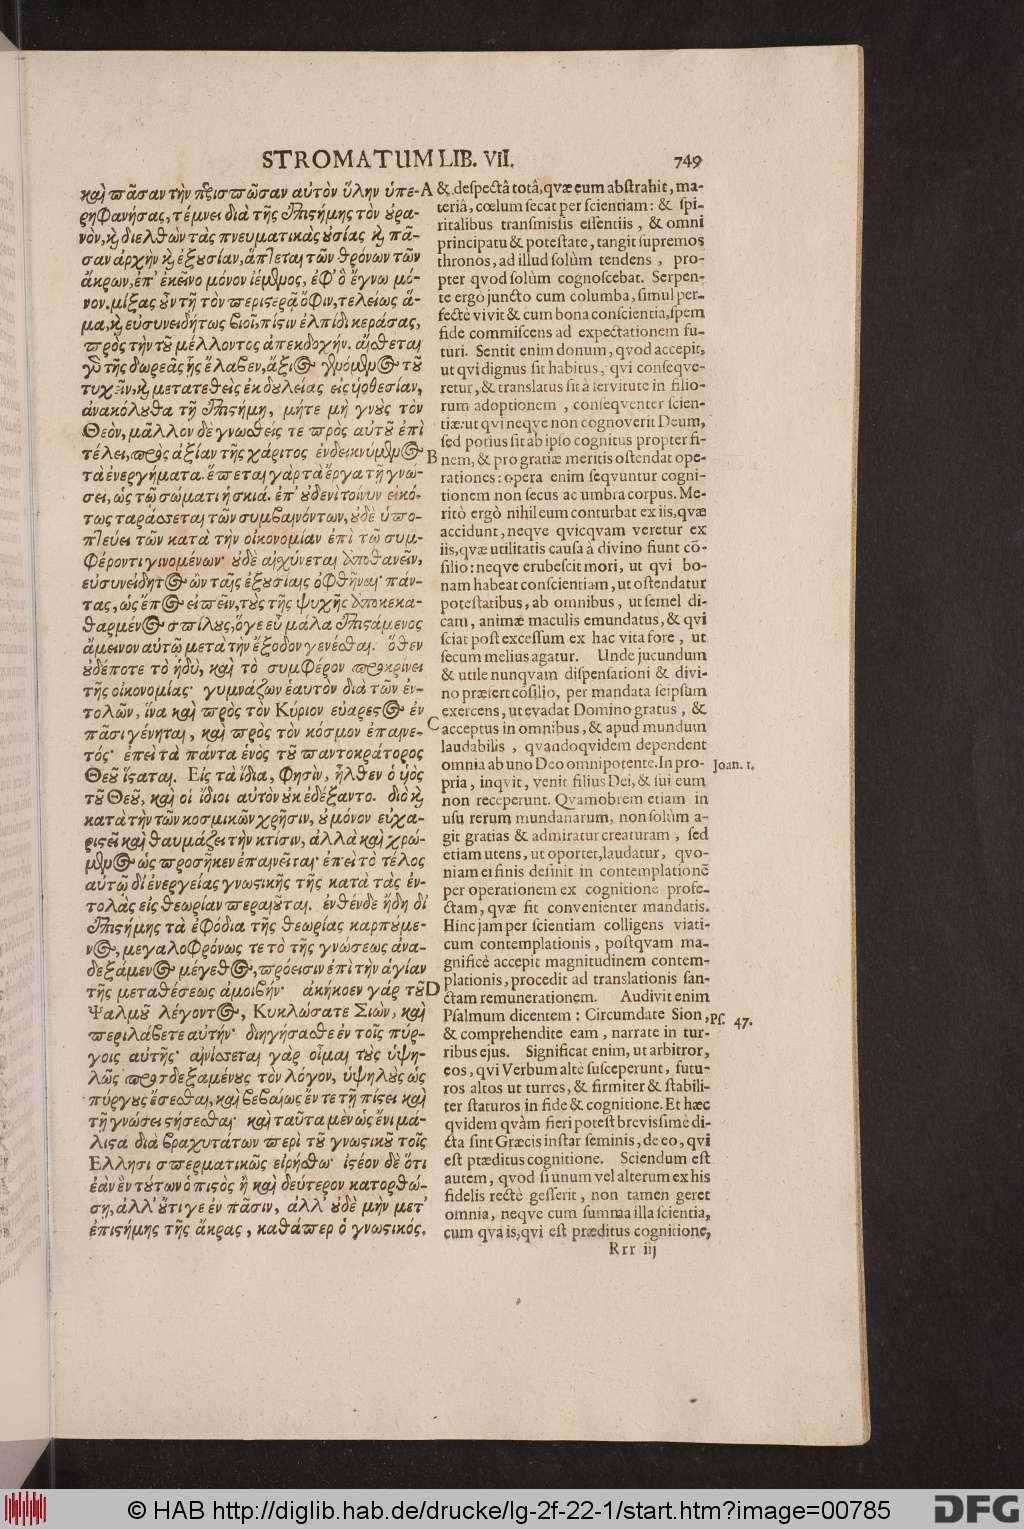 STROMATUM LIB. VII. 749
καὶ πᾶσαν τὴν περισπῶσαν αὐτὸν ὕλην ὑπε-
ρηφανήσας, τέμνει διὰ τῆς ἐπιστήμης τὸν οὐρα-
νὸν, καὶ διελθὼν τὰς πνευματικὰς οὐσίας καὶ πᾶ-
σαν ἀρχὴν καὶ ἐξουσίαν, ἅπτεται τῶν θρόνων τῶν
ἄκρων, ἐπ' ἐκεῖνο μόνον ἱέμενος, ἐφ' ὃ ἔγνω μό-
νον. μίξας οὖν τῇ τὸν περιστερᾷ ὄφιν, τελείως ἅ-
μα, καὶ εὐσυνειδήτως βιοῖ, πίστιν ἐλπίδι κεράσας,
πρὸς τὴν τοῦ μέλλοντος ἀπεκδοχήν. αἴσθεται
γὰρ τῆς δωρεᾶς ἧς ἔλαβεν, ἄξιος γενόμενος τοῦ
τυχεῖν, καὶ μετατεθεὶς ἐκ δουλείας εἰς υἱοθεσίαν,
ἀνακόλουθα τῇ ἐπιστήμῃ, μήτε μὴ γνοὺς τὸν
Θεὸν, μᾶλλον δὲ γνωσθείς τε πρὸς αὐτοῦ ἐπὶ
τέλει, πρὸς ἀξίαν τῆς χάριτος ἐνδεικνύμενος
τὰ ἐνεργήματα. ἕπεται γὰρ τὰ ἔργα τῇ γνώ-
σει, ὡς τῷ σώματι ἡ σκιά. ἐπ' οὐδενὶ τοίνυν εἰκό-
τως ταράσσεται τῶν συμβαινόντων, οὐδὲ ὑπο-
πτεύει τῶν κατὰ τὴν οἰκονομίαν ἐπὶ τῷ συμ-
φέροντι γινομένων· οὐδὲ αἰσχύνεται ἀποθανεῖν,
εὐσυνείδητος ὢν ταῖς ἐξουσίαις ὀφθῆναι· πάν-
τας, ὡς ἔπος εἰπεῖν, τοὺς τῆς ψυχῆς ἀποκεκα-
θαρμένος σπίλους, ὅγε εὖ μάλα ἐπιστάμενος
ἄμεινον αὐτῷ μετὰ τὴν ἔξοδον γενέσθαι. ὅθεν
οὐδέποτε τὸ ἡδὺ, καὶ τὸ συμφέρον προκρίνει
τῆς οἰκονομίας· γυμνάζων ἑαυτὸν διὰ τῶν ἐν-
τολῶν, ἵνα καὶ πρὸς τὸν Κύριον εὐάρεστος ἐν
πᾶσι γένηται, καὶ πρὸς τὸν κόσμον ἐπαινε-
τός· ἐπεὶ τὰ πάντα ἑνὸς τοῦ παντοκράτορος
Θεοῦ ἵσταται. Εἰς τὰ ἴδια, φησὶν, ἦλθεν ὁ υἱὸς
τοῦ Θεοῦ, καὶ οἱ ἴδιοι αὐτὸν οὐκ ἐδέξαντο. διὸ καὶ
κατὰ τὴν τῶν κοσμικῶν χρῆσιν, οὐ μόνον εὐχα-
ριστεῖ καὶ θαυμάζει τὴν κτίσιν, ἀλλὰ καὶ χρώ-
μενος ὡς προσῆκεν ἐπαινεῖται· ἐπεὶ τὸ τέλος
αὐτῷ δι' ἐνεργείας γνωστικῆς τῆς κατὰ τὰς ἐν-
τολὰς εἰς θεωρίαν περαιοῦται. ἐνθένδε ἤδη δι'
ἐπιστήμης τὰ ἐφόδια τῆς θεωρίας καρπούμε-
νος, μεγαλοφρόνως τε τὸ τῆς γνώσεως ἀνα-
δεξάμενος μέγεθος, πρόεισιν ἐπὶ τὴν ἁγίαν
τῆς μεταθέσεως ἀμοιβήν· ἀκήκοεν γάρ τοῦ
Ψαλμοῦ λέγοντος, Κυκλώσατε Σιών, καὶ
περιλάβετε αὐτήν· διηγήσασθε ἐν τοῖς πύρ-
γοις αὐτῆς· αἰνίσσεται γὰρ οἶμαι τοὺς ὑψη-
λῶς προσδεξαμένους τὸν λόγον, ὑψηλοὺς ὡς
πύργους ἔσεσθαι, καὶ βεβαίως ἔν τε τῇ πίστει καὶ
τῇ γνώσει στήσεσθαι· καὶ ταῦτα μὲν ὡς ἔνι μά-
λιστα διὰ βραχυτάτων περὶ τοῦ γνωστικοῦ τοῖς
Ελλησι σπερματικῶς εἰρήσθω· ἰστέον δὲ ὅτι
ἐὰν ἓν τούτων ὁ πιστὸς ἢ καὶ δεύτερον κατορθώ-
σῃ, ἀλλ' οὔτι γε ἐν πᾶσιν, ἀλλ' οὐδὲ μὴν μετ'
ἐπιστήμης τῆς ἄκρας, καθάπερ ὁ γνωστικός.
A & despectâ totâ, qvæ eum abstrahit, ma-
teriâ, cœlum secat per scientiam: & spi-
ritalibus transmissis essentiis, & omni
principatu & potestate, tangit supremos
thronos, ad illud solùm tendens, pro-
pter qvod solùm cognoscebat. Serpen-
te ergò juncto cum columba, simul per-
fectè vivit & cum bona conscientia, spem
fide commiscens ad expectationem fu-
turi. Sentit enim donum, qvod accepit,
ut qvi dignus sit habitus, qvi conseqve-
retur, & translatus sit à servitute in filio-
rum adoptionem, conseqventer scien-
tiæ: ut qvi neqve non cognoverit Deum,
sed potius sit ab ipso cognitus propter fi-
B nem, & pro gratiæ meritis ostendat ope-
rationes: opera enim seqvuntur cogni-
tionem non secus ac umbra corpus. Me-
ritò ergò nihil eum conturbat ex iis, qvæ
accidunt, neqve qvicqvam veretur ex
iis, qvæ utilitatis causa à divino fiunt cō-
silio: neqve erubescit mori, ut qvi bo-
nam habeat conscientiam, ut ostendatur
potestatibus, ab omnibus, ut semel di-
cam, animæ maculis emundatus, & qvi
sciat post excessum ex hac vita fore, ut
secum melius agatur. Unde jucundum
& utile nunqvam dispensationi & divi-
no præfert cōsilio, per mandata seipsum
exercens, ut evadat Domino gratus, &
C acceptus in omnibus, & apud mundum
laudabilis, qvandoqvidem dependent
omnia ab uno Deo omnipotente. In pro- Joan. 1.
pria, inqvit, venit filius Dei, & sui eum
non receperunt. Qvamobrem etiam in
usu rerum mundanarum, non solùm a-
git gratias & admiratur creaturam, sed
etiam utens, ut oportet, laudatur, qvo-
niam ei finis desinit in contemplationē
per operationem ex cognitione profe-
ctam, qvæ fit convenienter mandatis.
Hinc jam per scientiam colligens viati-
cum contemplationis, postqvam ma-
gnificè accepit magnitudinem contem-
plationis, procedit ad translationis san-
D ctam remunerationem. Audivit enim
Psalmum dicentem: Circumdate Sion, Ps. 47.
& comprehendite eam, narrate in tur-
ribus ejus. Significat enim, ut arbitror,
eos, qvi Verbum altè susceperunt, futu-
ros altos ut turres, & firmiter & stabili-
ter staturos in fide & cognitione. Et hæc
qvidem qvàm fieri potest brevissimè di-
cta sint Græcis instar seminis, de eo, qvi
est præditus cognitione. Sciendum est
autem, qvod si unum vel alterum ex his
fidelis rectè gesserit, non tamen geret
omnia, neqve cum summa illa scientia,
cum qva is, qvi est præditus cognitione,
Rrr iij
© HAB http://diglib.hab.de/drucke/lg-2f-22-1/start.htm?image=00785
DFG